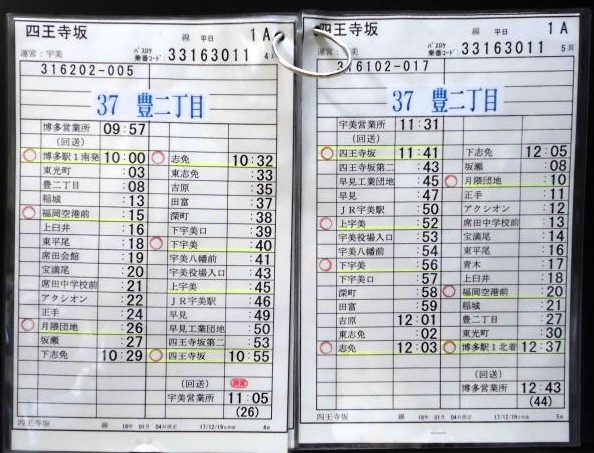 四王寺坂 線 平日 1A
運営：宇美 バスロケ乗番コード： 33163011 4頁
316202-005
37 豊二丁目
博多営業所 09:57
(回送)
博多駅1南発 10:00
東光町 :03
豊二丁目 :08
稲城 :13
福岡空港前 :15
上臼井 :16
東平尾 :18
席田会館 :19
宝満尾 :20
席田中学校前 :21
アクシオン :22
正手 :24
月隈団地 :26
坂瀬 :27
下志免 10:29
志免 10:32
東志免 :33
吉原 :35
田富 :37
深町 :38
下宇美口 :39
下宇美 :40
宇美八幡前 :41
宇美役場入口 :43
上宇美 :45
JR宇美駅 :46
早見 :49
早見工業団地 :50
四王寺坂第二 :53
四王寺坂 10:55
(回送)
宇美営業所 11:05
(26)
四王寺坂 線 18年 01月 04日改正 17/12/19 4頁
四王寺坂 線 平日 1A
運営：宇美 バスロケ乗番コード： 33163011 5頁
316102-017
37 豊二丁目
宇美営業所 11:31
(回送)
四王寺坂 11:41
四王寺坂第二 :43
早見工業団地 :45
早見 :47
JR宇美駅 :50
上宇美 :52
宇美役場入口 :53
宇美八幡前 :54
下宇美 :56
下宇美口 :57
深町 :58
田富 :59
吉原 12:01
東志免 :02
志免 12:03
下志免 12:05
坂瀬 :08
月隈団地 :10
正手 :11
アクシオン :12
席田中学校前 :13
宝満尾 :14
東平尾 :16
青木 :17
上臼井 :18
福岡空港前 :20
稲城 :21
豊二丁目 :27
東光町 :30
博多駅1北着 12:37
(回送)
博多営業所 12:43
(44)
四王寺坂 線 18年 01月 04日改正 17/12/19 5頁